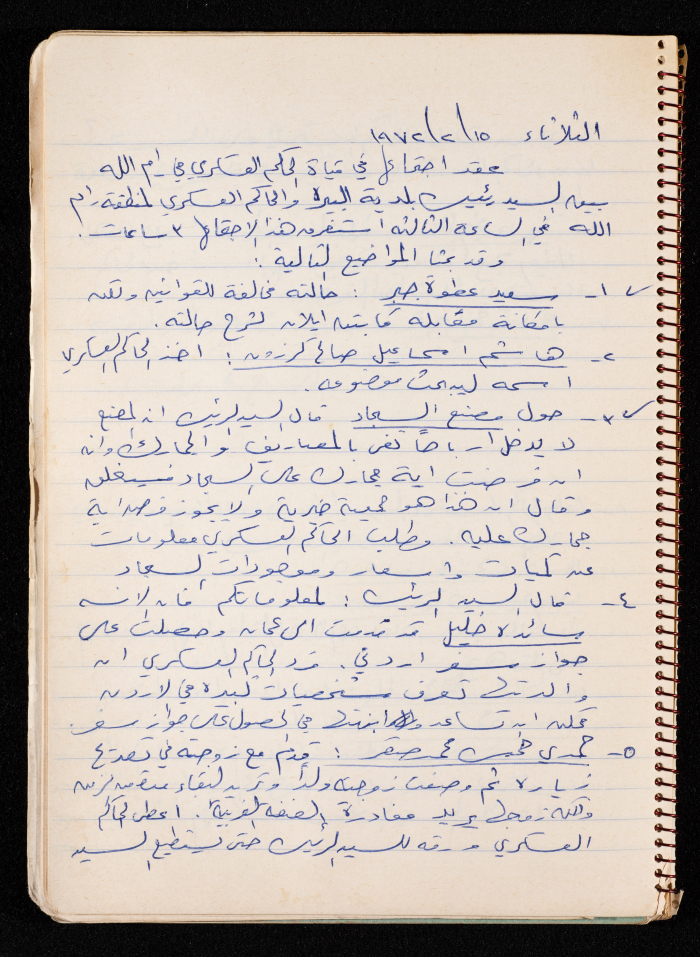 الثلاثاء ١٥/٢/١٩٧٢
عقد اجتماع في قيادة الحكم العسكري في رام الله
بين السيد رئيس بلدية البيرة والحاكم العسكري لمنطقة رام
الله في الساعة الثالثة استغرق هذا الاجتماع ٣ ساعات.
وقد بحثا المواضيع التالية :
١- سعيد عطوة جبر : حالته مخالفة للقوانين ولكن
بامكانة مقابلة كابتن ايلان لشرح حالته.
٢- هاشم اسماعيل صالح كرزون : اخذ الحاكم العسكري
اسمه ليبحث موضوعه.
٣- حول مصنع السجاد قال السيد الرئيس ان المصنع
لا يدخل ارباحاً تفي بالمصاريف او الجمارك وانه
ان فرضت اية جمارك على السجاد فسيغلق
وقال ان هذا هو جمعية خيرية ولا يجوز فرض اية
جمارك عليه. وطلب الحاكم العسكري معلومات
عن كميات واسعار وموجودات السجاد
٤- قال السيد الرئيس : لمعلوماتكم فان الانسه
سائدة خليل قد قدمت الى عمان وحصلت على
جواز سفر اردني. فرد الحاكم العسكري ان
والدتها تعرف شخصيات كبيرة في الاردن
يمكن ان تساعد ابنتها في الحصول على جواز سفر.
٥- حمدي محمد صقر : قدم مع زوجته في تصريح
زيارة ثم وضعت زوجته ولداً وتريد البقاء مدة من الزمن
ولكن زوجها يريد مغادرة الضفة الغربية. اعطى الحاكم
العسكري ورقه للسيد الرئيس حتى يستطيع السيد